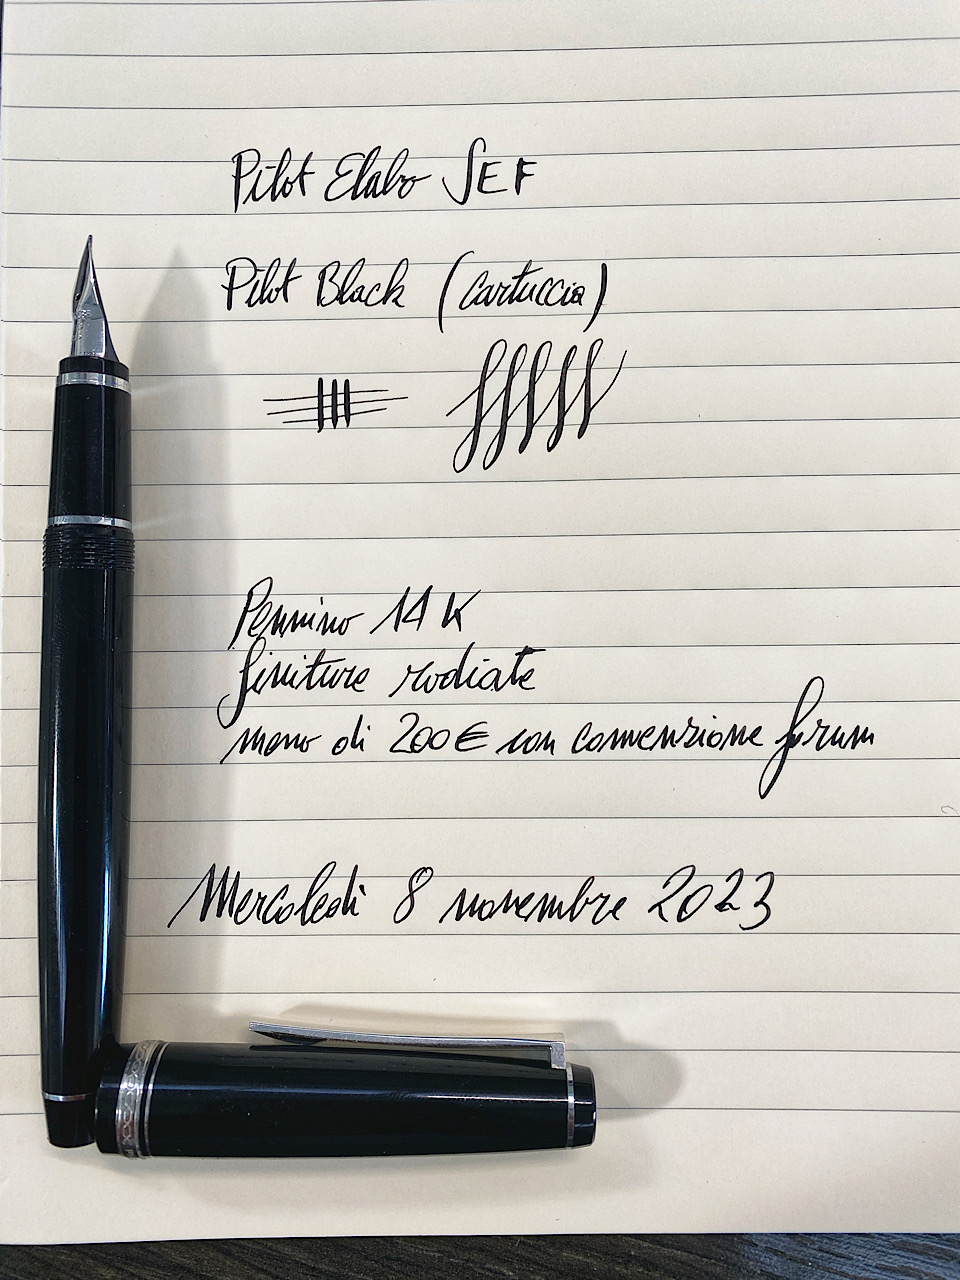 Pilot Elabo SEF
Pilot Black (Cartuccia)
Pennino 14 K
finiture rodiate
meno di 200€ con convenzione forum
Mercoledì 8 novembre 2023